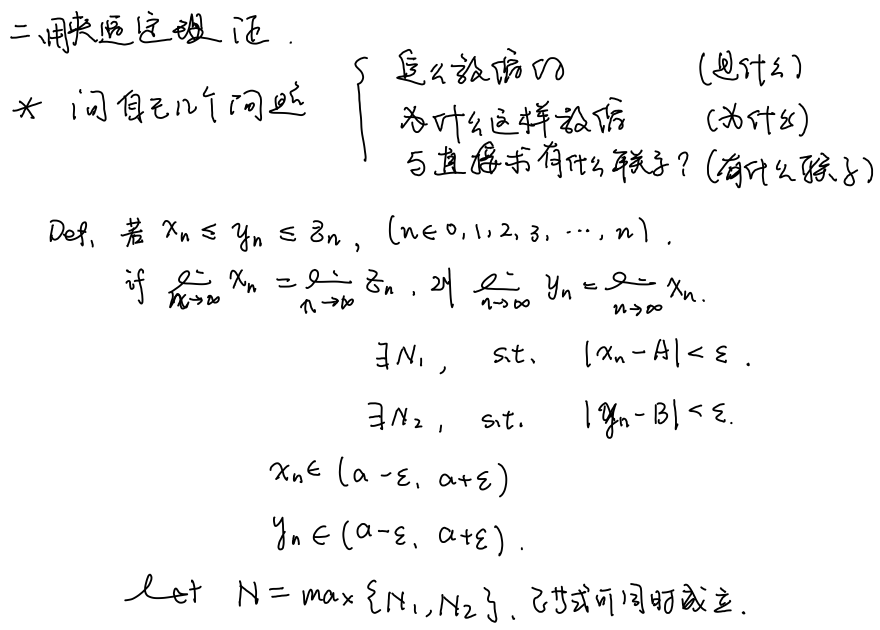 二 用夹逼定理证.
* 问自己几个问题 { 怎么放缩的 (是什么)
为什么这样放缩 (为什么)
与直接求有什么联系? (有什么联系)
Def. 若 xₙ ≤ yₙ ≤ zₙ, (n∈0,1,2,3,⋯,n).
if lim_{n→∞} xₙ = lim_{n→∞} zₙ. 则 lim_{n→∞} yₙ = lim_{n→∞} xₙ.
∃N₁, s.t. |xₙ-A|<ε.
∃N₂, s.t. |yₙ-B|<ε.
xₙ∈(a-ε, a+ε)
yₙ∈(a-ε, a+ε).
let N = max{N₁,N₂}, 式可同时成立.